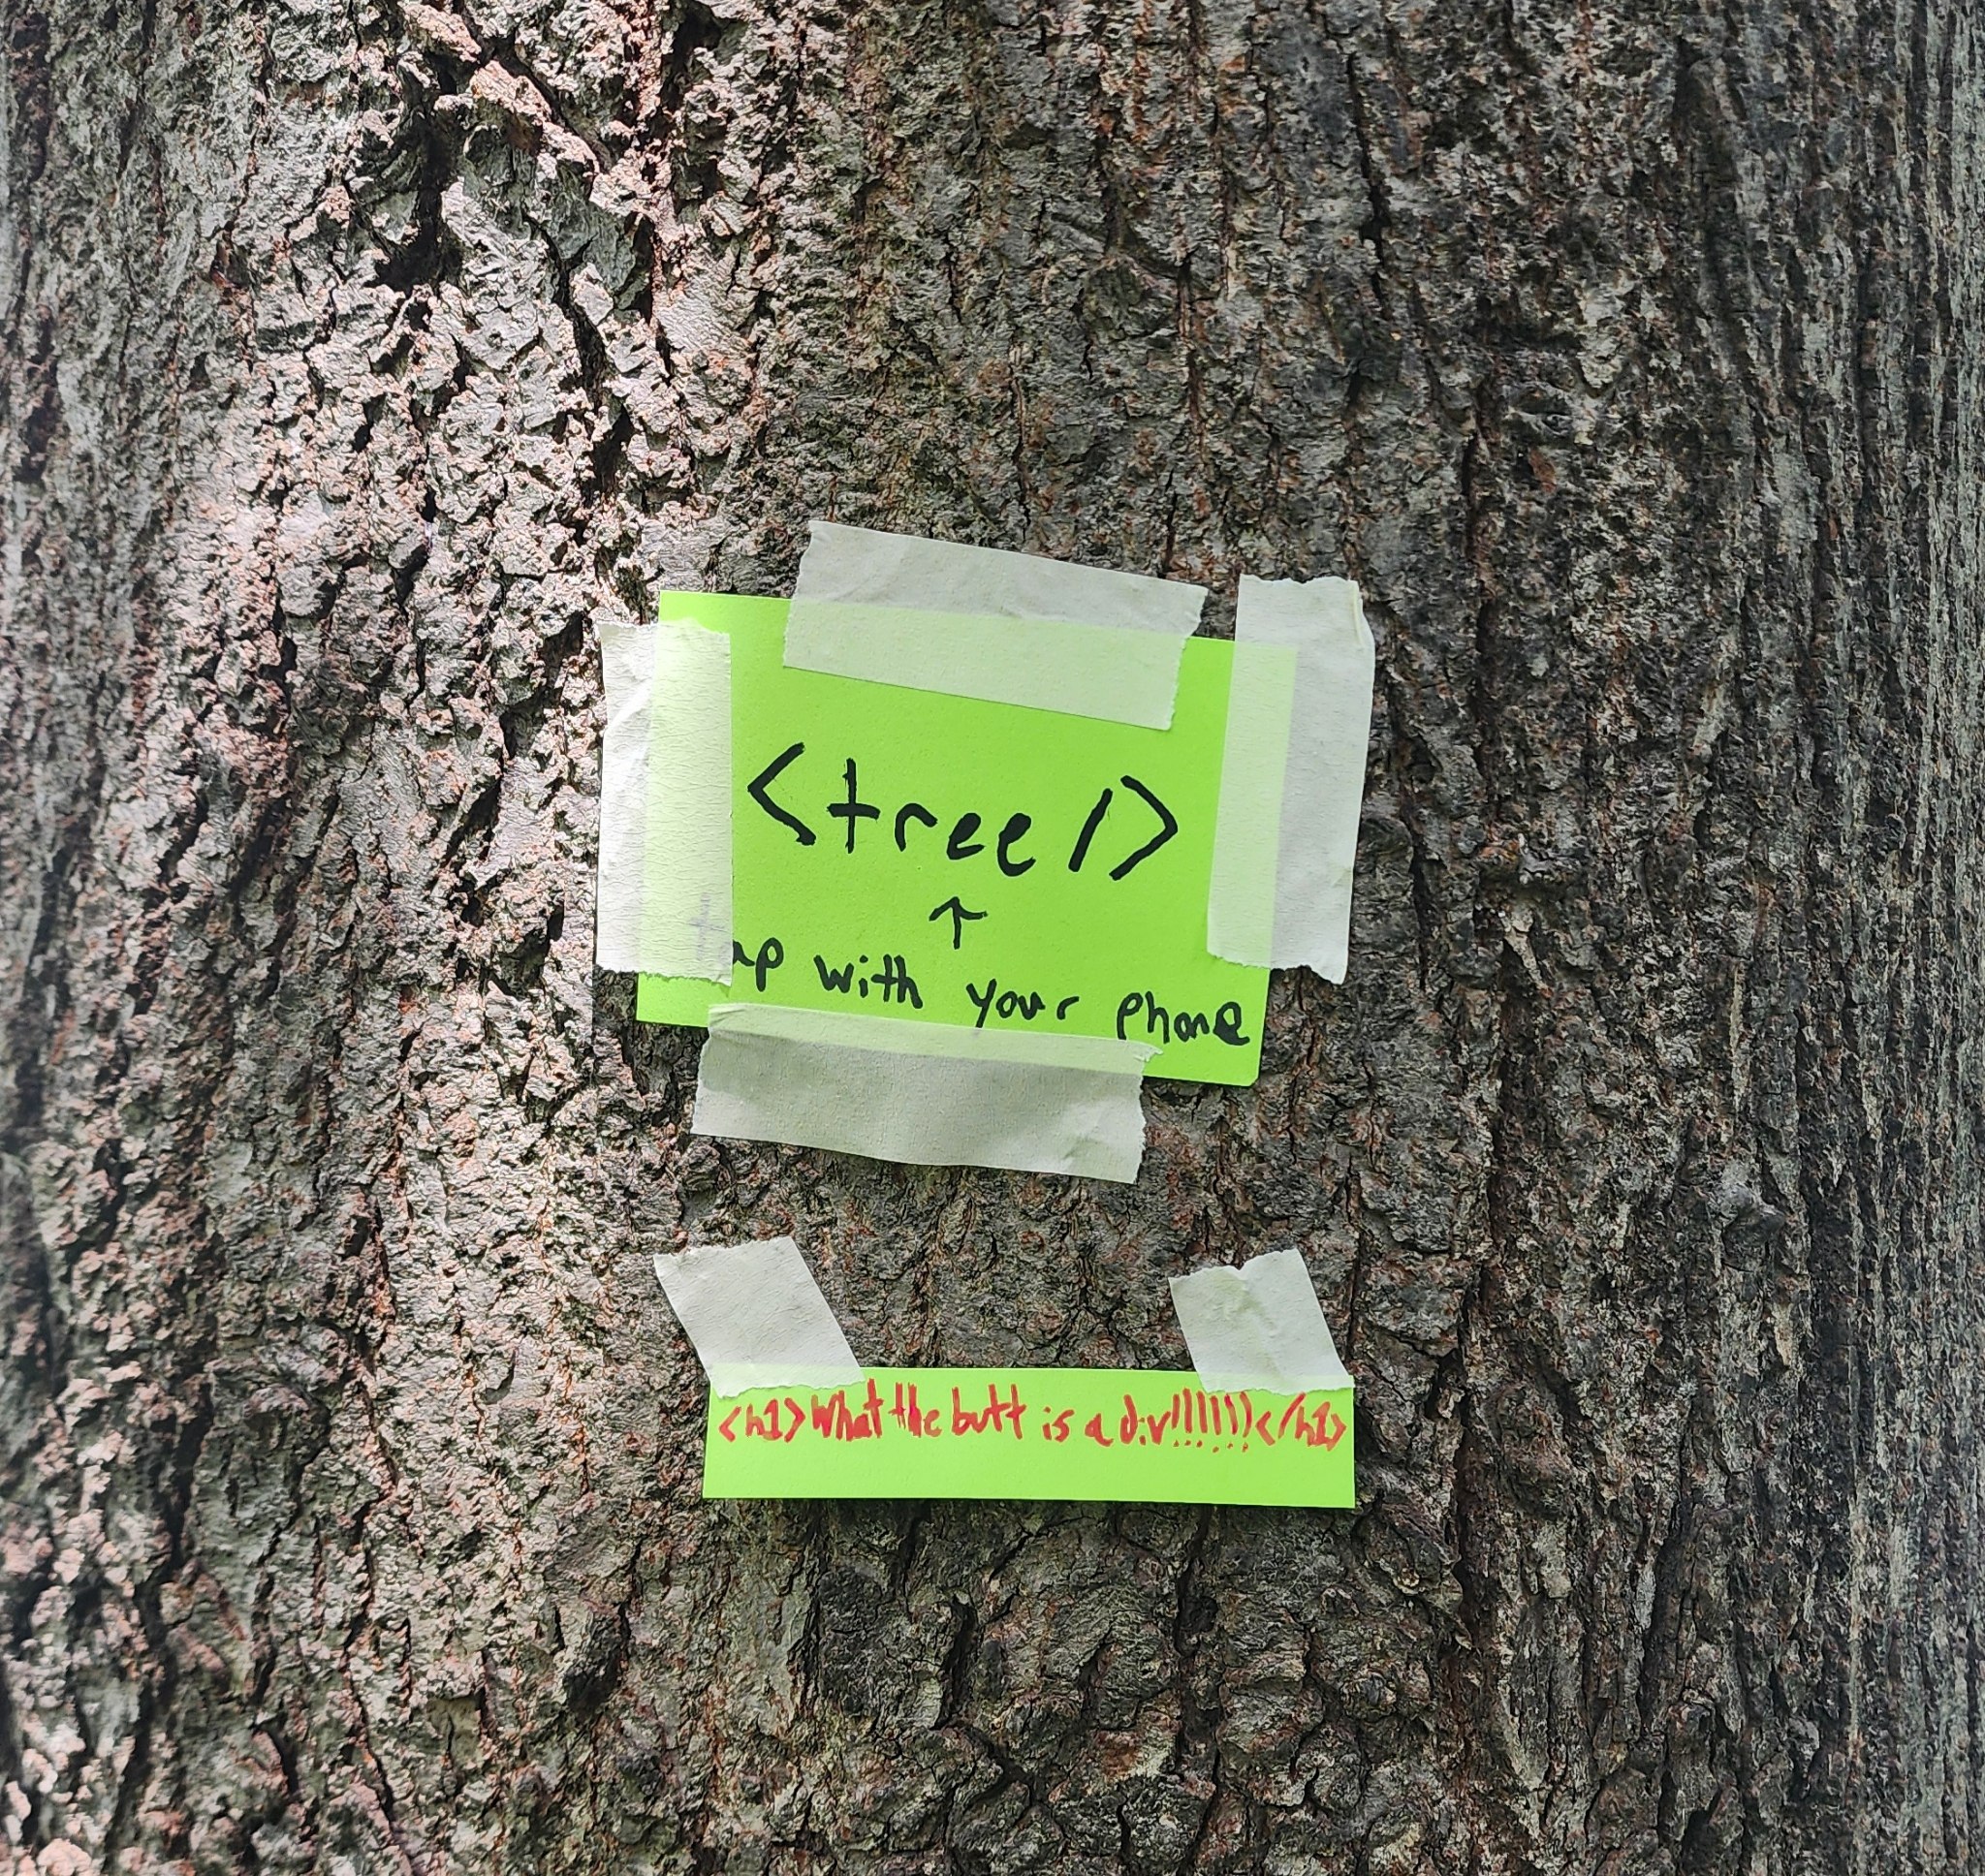 <tree/>
↑
ap with your phone
<h1>What the butt is a div!!!!!!</h1>